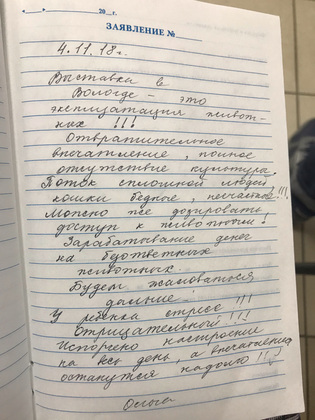 «___»____________20__г.
ЗАЯВЛЕНИЕ №____
4.11.18г.
Выставка в
Вологде - это
эксплуатация живот-
ных !!!
Отвратительное
впечатление, полное
отсутствие культуры.
Поток сплошной людей,
кошки бедные, несчастные!!!
Можно же дозировать
доступ к животным!
Зарабатывание денег
на бедных животных.
Будем жаловаться
дальше!
У ребёнка стресс !!!
отрицательный!!!
Испорчено настроение
на весь день, а впечатления
останутся надолго!!!
Ольга